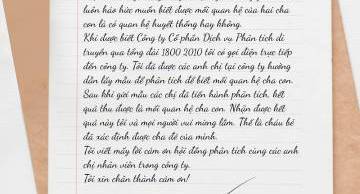 luôn háo hức muốn biết được mối quan hệ của hai cha
con là có quan hệ huyết thống hay không.
Khi được biết Công ty Cổ phần Dịch vụ Phân tích di
truyền qua tổng đài 1800 2010 tôi có gọi điện trực tiếp
đến công ty. Tôi đã được các anh chị tại công ty hướng
dẫn lấy mẫu để phân tích để biết mối quan hệ cha con.
Sau khi gửi mẫu các chị đã tiến hành phân tích, kết
quả thu được là mối quan hệ cha con. Nhận được kết
quả này tôi và mọi người vui mừng lắm. Thế là cháu bé
đã xác định được cha đẻ của mình.
Tôi viết mấy lời cảm ơn hội đồng phân tích cùng các anh
chị nhân viên trong công ty.
Tôi xin chân thành cảm ơn!